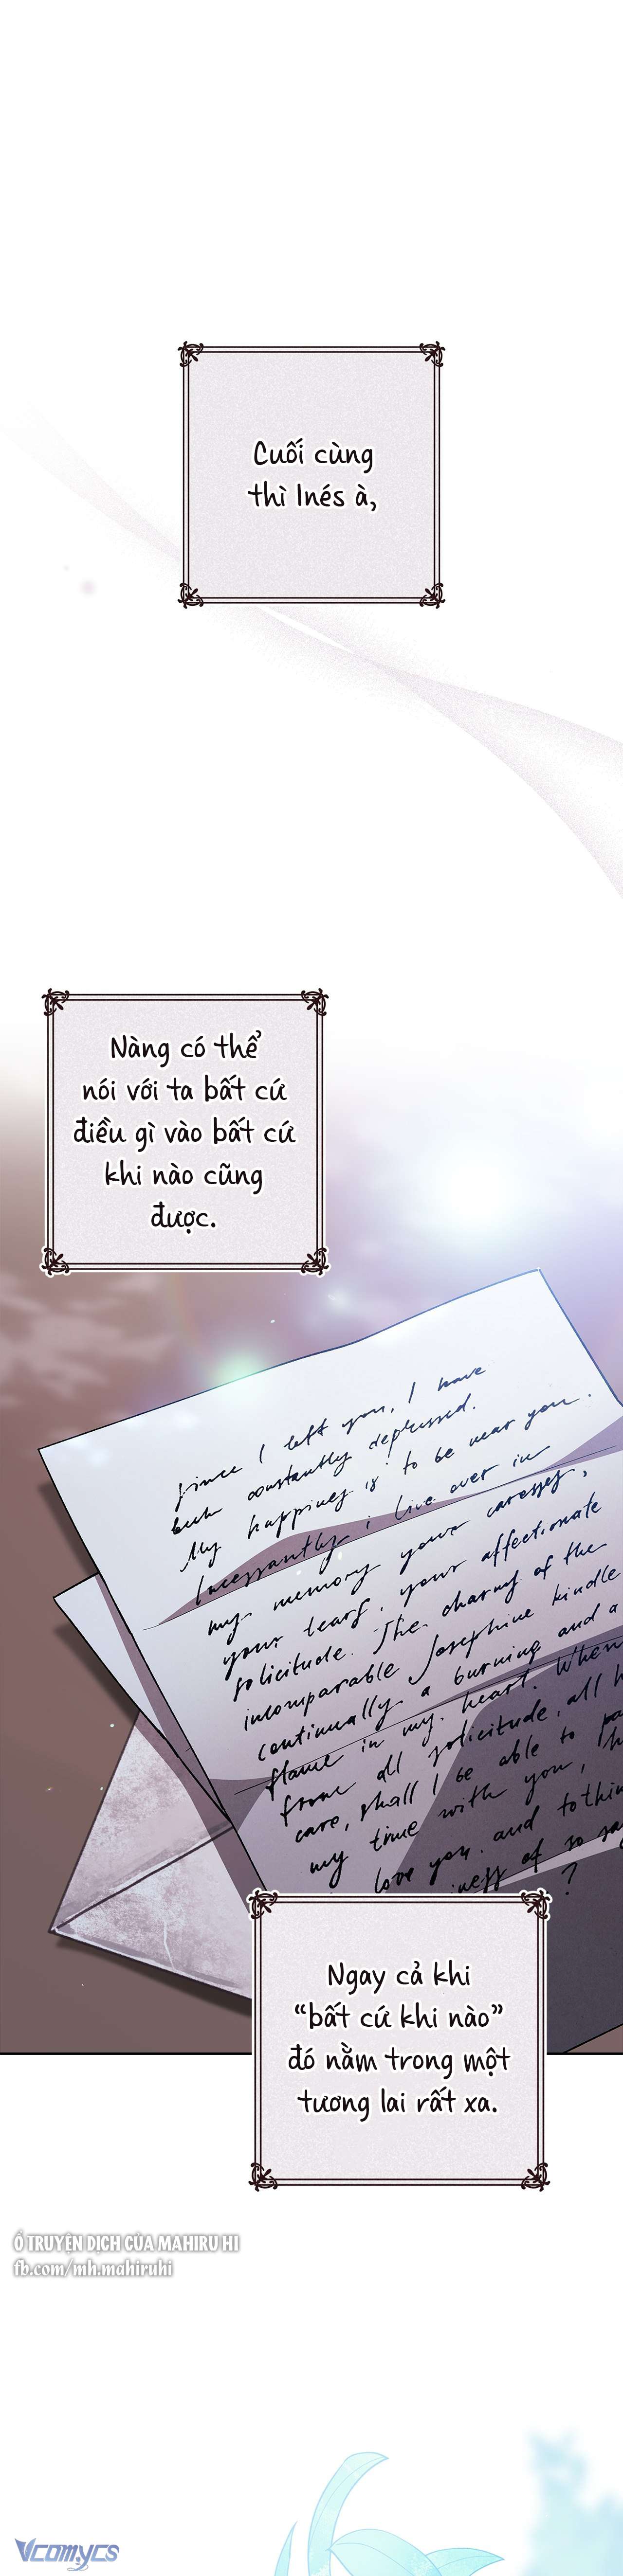 Cuối cùng
thì Inés à,
Nàng có thể
nói với ta bất cứ
điều gì vào bất cứ
khi nào cũng
được.
since I left you, I have
been constantly depressed.
My happiness is to be near you.
Incessantly i live over in
my memory your caresses,
your tears, your affectionate
solicitude. The charms of the
incomparable Josephine kindle
continually a burning and a
flame in my heart. When
from all solicitude, all h
care, shall I be able to pa
my time with you, h
love you, and to thin
iness of so sa
?
Ngay cả khi
“bất cứ khi nào”
đó nằm trong một
tương lai rất xa.
Ổ TRUYỆN DỊCH CỦA MAHIRU HI
fb.com/mh.mahiruhi
Vcomycs